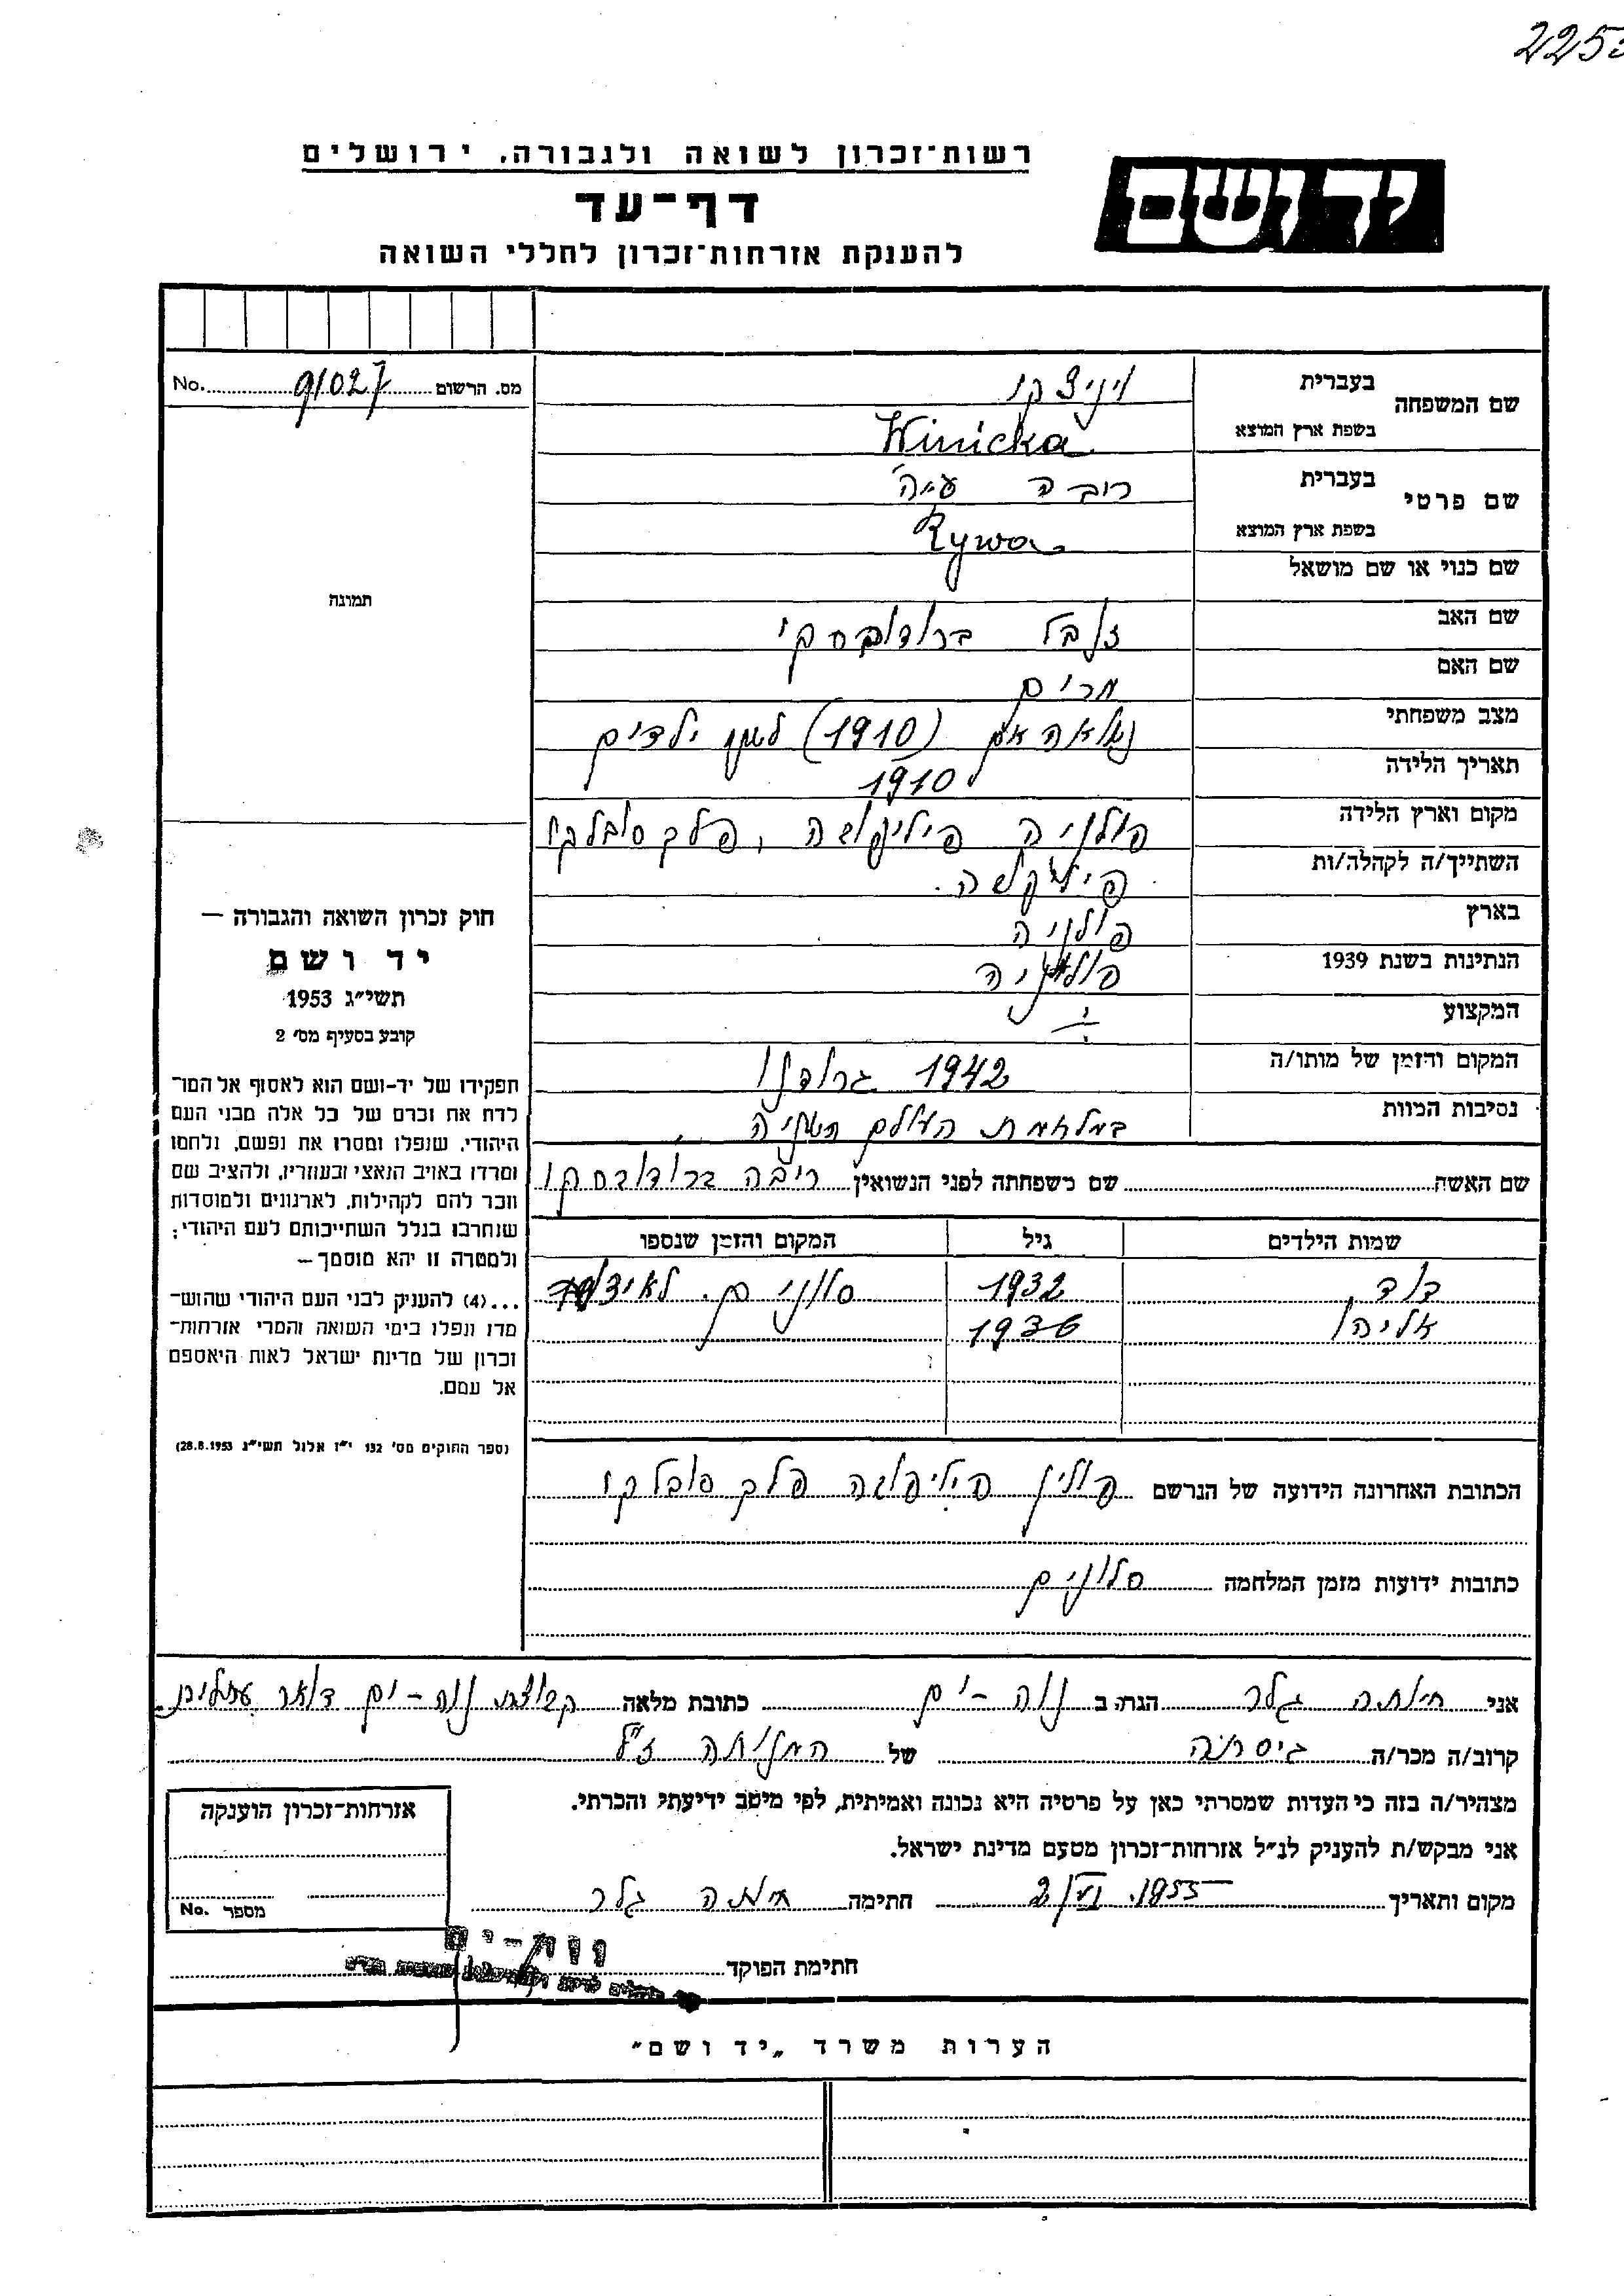 2253
רשות־זכרון לשואה ולגבורה, ירושלים
יד ושם
דף־עד
להענקת אזרחות־זכרון לחללי השואה
מס. הרשום 91027 No.
שם המשפחה בעברית ויניצקי
בשפת ארץ המוצא Winicka
שם פרטי בעברית
בשפת ארץ המוצא Rywa
שם כנוי או שם מושאל
תמונה
שם האב
שם האם מרים
מצב משפחתי נשואה אם (1910) ילדים
תאריך הלידה 1910
מקום וארץ הלידה פולניה פיליפובה, פלך סובלקי
השתייך/ה לקהלה/ות
בארץ פולניה
הנתינות בשנת 1939 פולניה
המקצוע
המקום והזמן של מותו/ה 1942 גרודנו
נסיבות המוות במלחמת העולם השניה
שם האשה שם משפחתה לפני הנשואין ריבה
שמות הילדים גיל המקום והזמן שנספו
דוד 1932 סלונים
אליהו 1936
הכתובת האחרונה הידועה של הנרשם פולין פיליפובה פלך סובלקי
כתובות ידועות מזמן המלחמה סלונים
חוק זכרון השואה והגבורה —
יד ושם
תשי״ג 1953
קובע בסעיף מס׳ 2
תפקידו של יד-ושם הוא לאסוף אל המו־
לדת את זכרם של כל אלה מבני העם
היהודי, שנפלו ומסרו את נפשם, נלחמו
ומרדו באויב הנאצי ובעוזריו, ולהציב שם
וזכר להם לקהילות, לארגונים ולמוסדות
שנחרבו בגלל השתייכותם לעם היהודי;
ולמטרה זו יהא מוסמך —
...(4) להענקת לבני העם היהודי שהוש־
מדו ונפלו בימי השואה והמרי אזרחות־
זכרון של מדינת ישראל לאות היאספם
אל עמם.
(ספר החוקים מס׳ 132 י״ז אלול תשי״ג 28.8.1953)
אני גלר הגר/ה ב נוה-ים כתובת מלאה קבוצת נוה-ים דואר עתלית
קרוב/ה מכר/ה גיסתה של המנוחה ז"ל
מצהיר/ה בזה כי העדות שמסרתי כאן על פרטיה היא נכונה ואמיתית, לפי מיטב ידיעתי והכרתי.
אני מבקש/ת להעניק לנ״ל אזרחות־זכרון מטעם מדינת ישראל.
מקום ותאריך 1955 חתימה גלר
אזרחות־זכרון הוענקה
מספר No.
חתימת הפוקד
נוה-ים
הערות משרד „יד ושם״